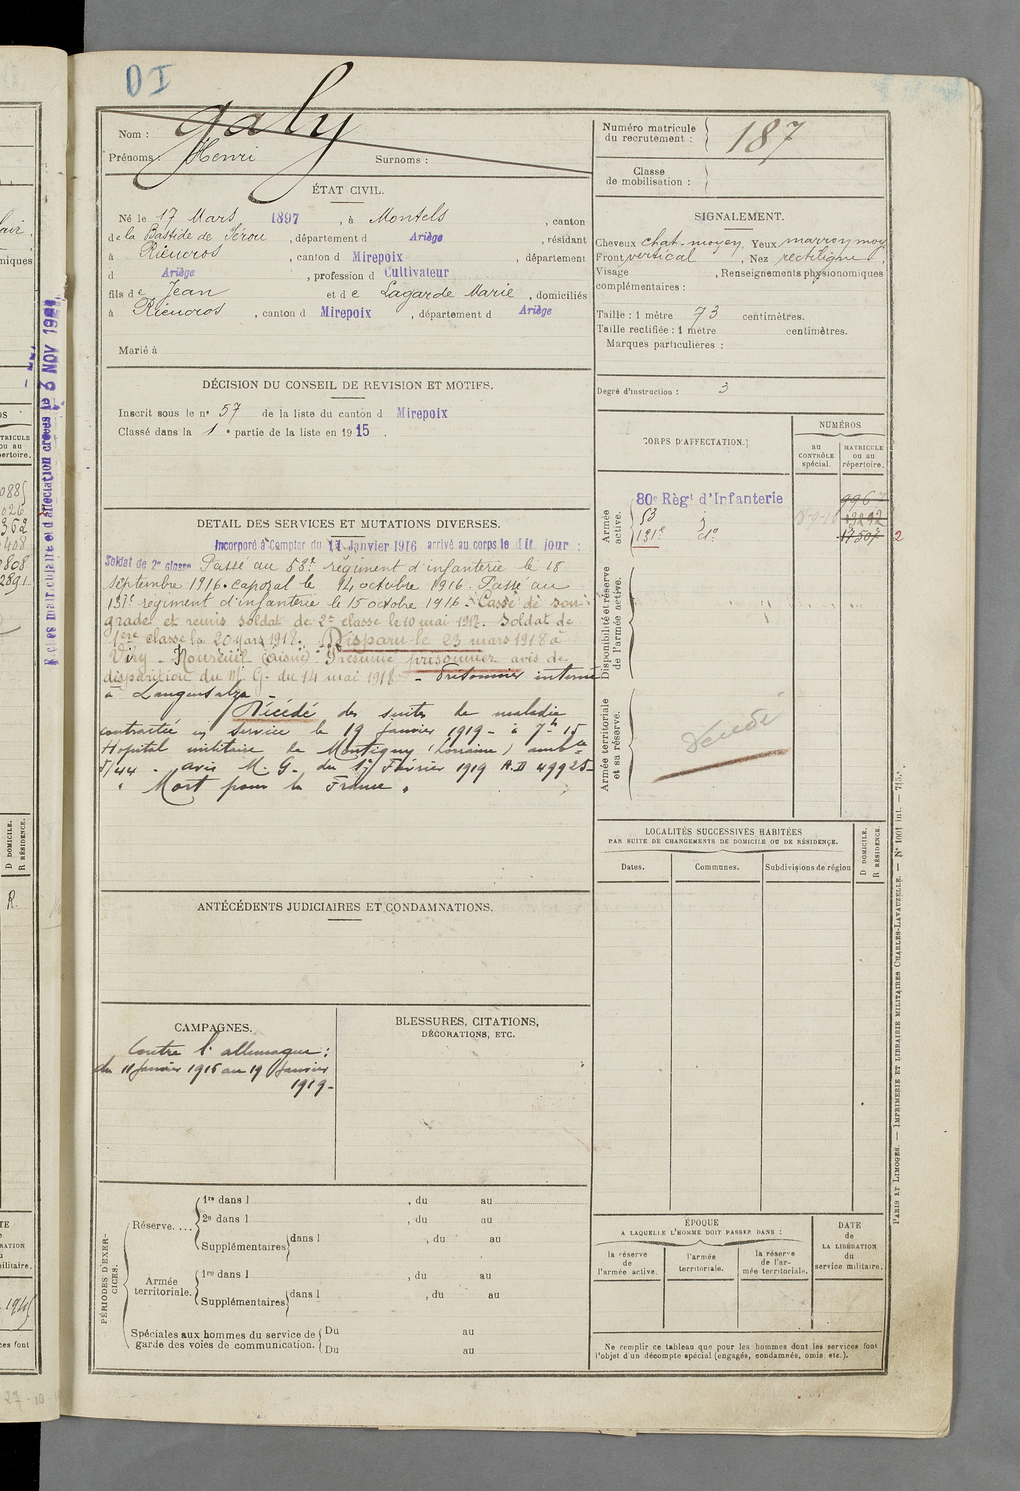 DI
Nom : Galy
Prénoms : Henri Surnoms :
Numéro matricule du recrutement : 187
Classe de mobilisation :
ÉTAT CIVIL.
Né le 17 Mars 1897, à Montels, canton
de la Bastide de Sérou, département d Ariège, résidant
à Rieucros, canton d Mirepoix, département
d Ariège, profession d Cultivateur
fils de Jean et de Lagarde Marie, domiciliés
à Rieucros, canton d Mirepoix, département d Ariège
Marié à
SIGNALEMENT.
Cheveux chat. moyen, Yeux marron moy
Front vertical, Nez rectiligne,
Visage , Renseignements physionomiques
complémentaires :
Taille : 1 mètre 73 centimètres.
Taille rectifiée : 1 mètre centimètres.
Marques particulières :
Degré d'instruction : 3
DÉCISION DU CONSEIL DE REVISION ET MOTIFS.
Inscrit sous le n° 57 de la liste du canton d Mirepoix
Classé dans la 1e partie de la liste en 1915.
CORPS D'AFFECTATION.
NUMÉROS
au CONTRÔLE spécial.
MATRICULE ou au répertoire.
Armée active.
80e Régt d'Infanterie
53 
131e do 2
Disponibilité et réserve de l'armée active.
Armée territoriale et sa réserve.
DETAIL DES SERVICES ET MUTATIONS DIVERSES.
Incorporé à Compter du 11 Janvier 1916 arrivé au corps le dit jour :
Soldat de 2e classe Passé au 53e régiment d'infanterie le 18
septembre 1916. caporal le 14 octobre 1916. Passé au
131e régiment d'infanterie le 15 octobre 1916. Cassé de son
grade et remis soldat de 2e classe le 10 mai 1917. Soldat de
1ère classe le 20 mars 1918. Disparu le 23 mars 1918 à
Viry-Noureuil (Aisne). Présumé prisonnier avis de
disparition du M. G. du 14 mai 1918 - Prisonnier interné
à Langensalza -
Décédé des suites de maladie
contractée en service le 19 Janvier 1919 - à 7h 15
Hopital militaire de Montigny (Lorraine) ambce
5/44 - avis M. G. du 17 Février 1919 A.D 49925-
" Mort pour la France "
LOCALITÉS SUCCESSIVES HABITÉES
PAR SUITE DE CHANGEMENTS DE DOMICILE OU DE RÉSIDENCE.
Dates. Communes. Subdivisions de région
D DOMICILE.
R RÉSIDENCE.
ANTÉCÉDENTS JUDICIAIRES ET CONDAMNATIONS.
CAMPAGNES.
Contre l'allemagne :
du 11 Janvier 1916 au 19 Janvier
1919-
BLESSURES, CITATIONS,
DÉCORATIONS, ETC.
PÉRIODES D'EXERCICES.
Réserve....
1re dans l , du au
2e dans l , du au
Supplémentaires dans l , du au
Armée territoriale.
1re dans l , du au
Supplémentaires dans l , du au
Spéciales aux hommes du service de garde des voies de communication.
Du au
Du au
ÉPOQUE
A LAQUELLE L'HOMME DOIT PASSER DANS :
la réserve de l'armée active.
l'armée territoriale.
la réserve de l'armée territoriale.
DATE de LA LIBÉRATION du service militaire.
Ne remplir ce tableau que pour les hommes dont les services font
l'objet d'un décompte spécial (engagés, condamnés, omis, etc.).
PARIS ET LIMOGES. — IMPRIMERIE ET LIBRAIRIE MILITAIRES CHARLES-LAVAUZELLE. — N° 1001 int. — 7|5.